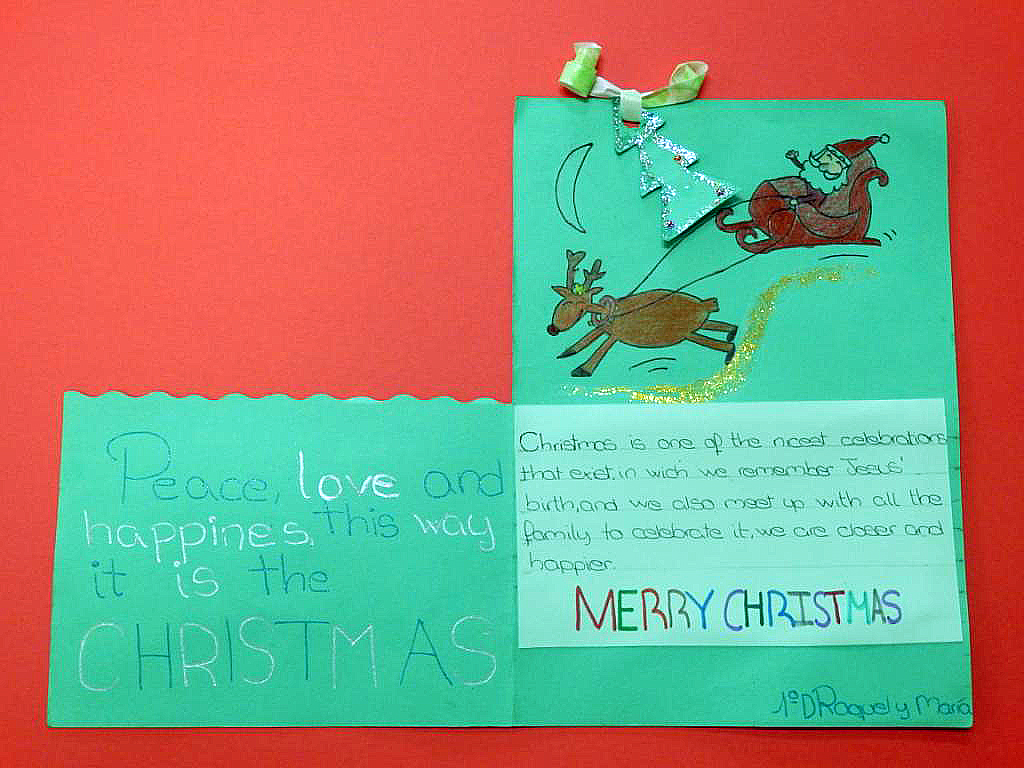 Peace, love and
happines, this way
it is the
CHRISTMAS
Christmas is one of the nicest celebrations
that exist, in wich we remember Jesus'
birth, and we also meet up with all the
family to celebrate it, we are closer and
happier.
MERRY CHRISTMAS
1ºD Raquel y María